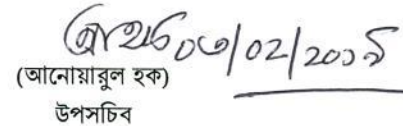 ০৩/০২/২০১৯
(আনোয়ারুল হক)
উপসচিব